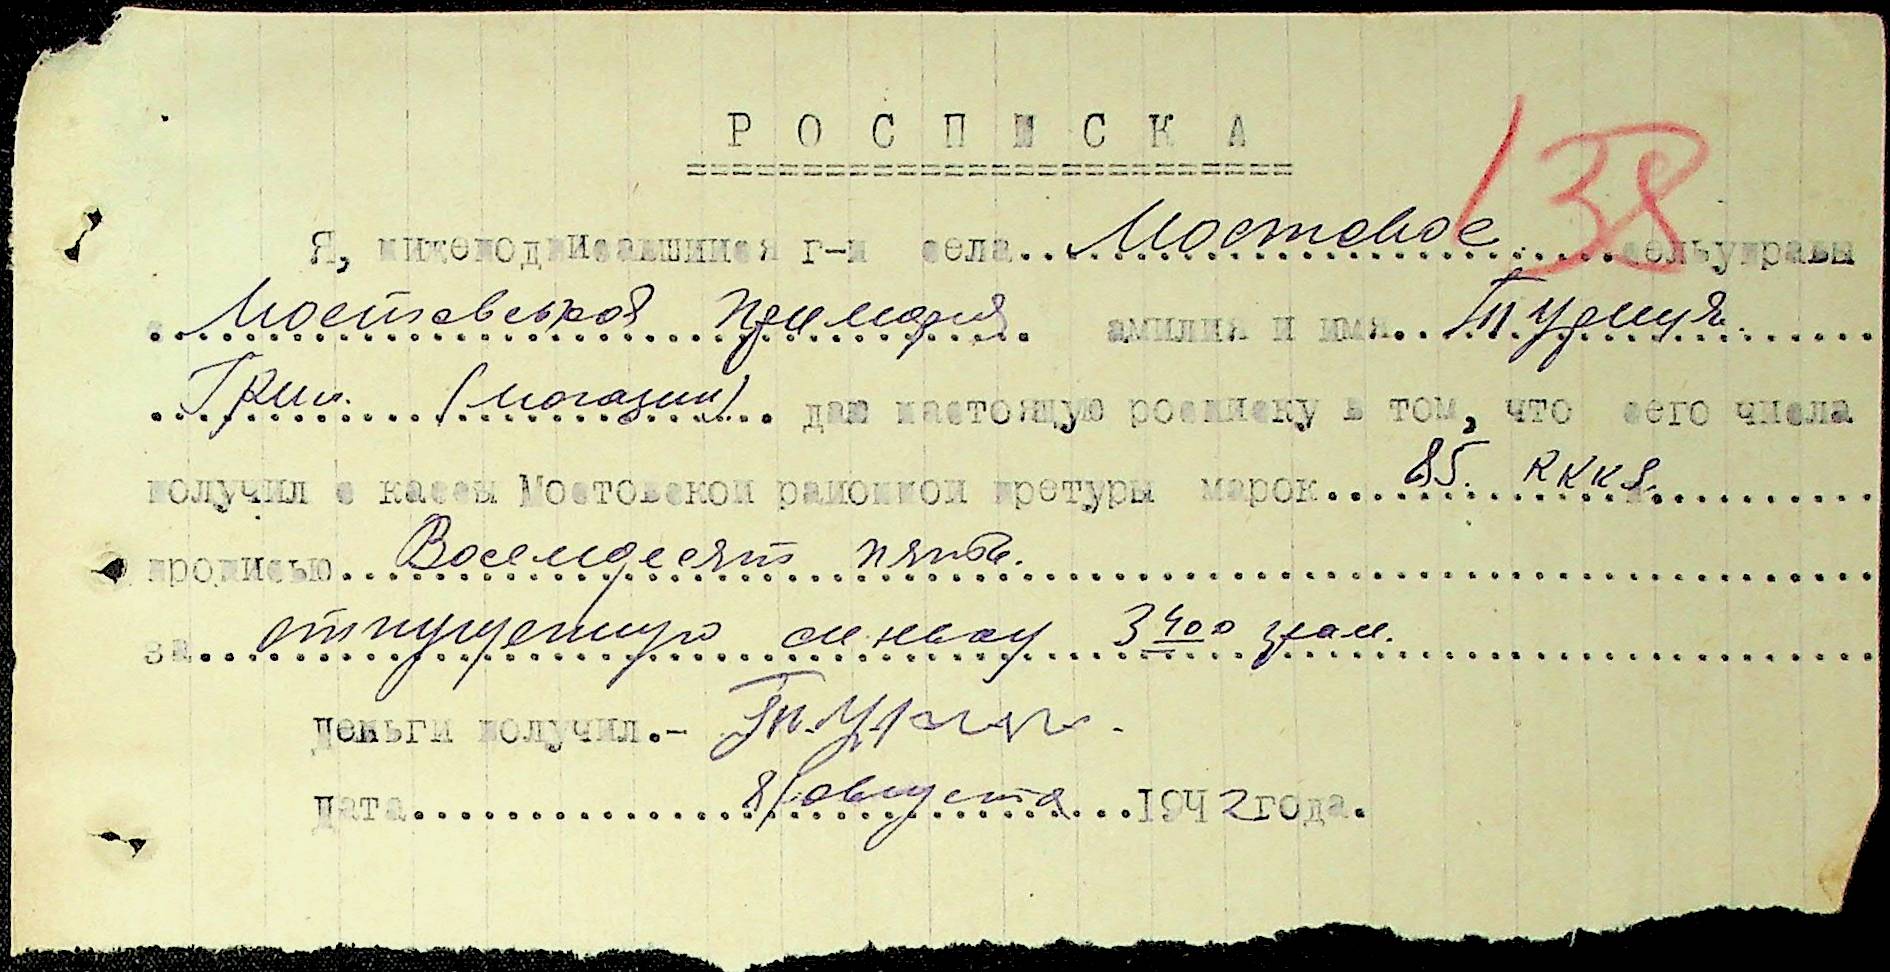 РОСПИСКА
138
Я, нижеподписавшийся г-н села Мостовое сельуправы
Мостовской примарии фамилия и имя
Григ. (магазин) даю настоящую росписку в том, что сего числа
получил с кассы Мостовской районной претуры марок 85. RKKS.
прописью Восемдесят пять.
за отпущенную синьку 3400 грам.
Деньги получил.-
Дата 8/августа 1942 года.